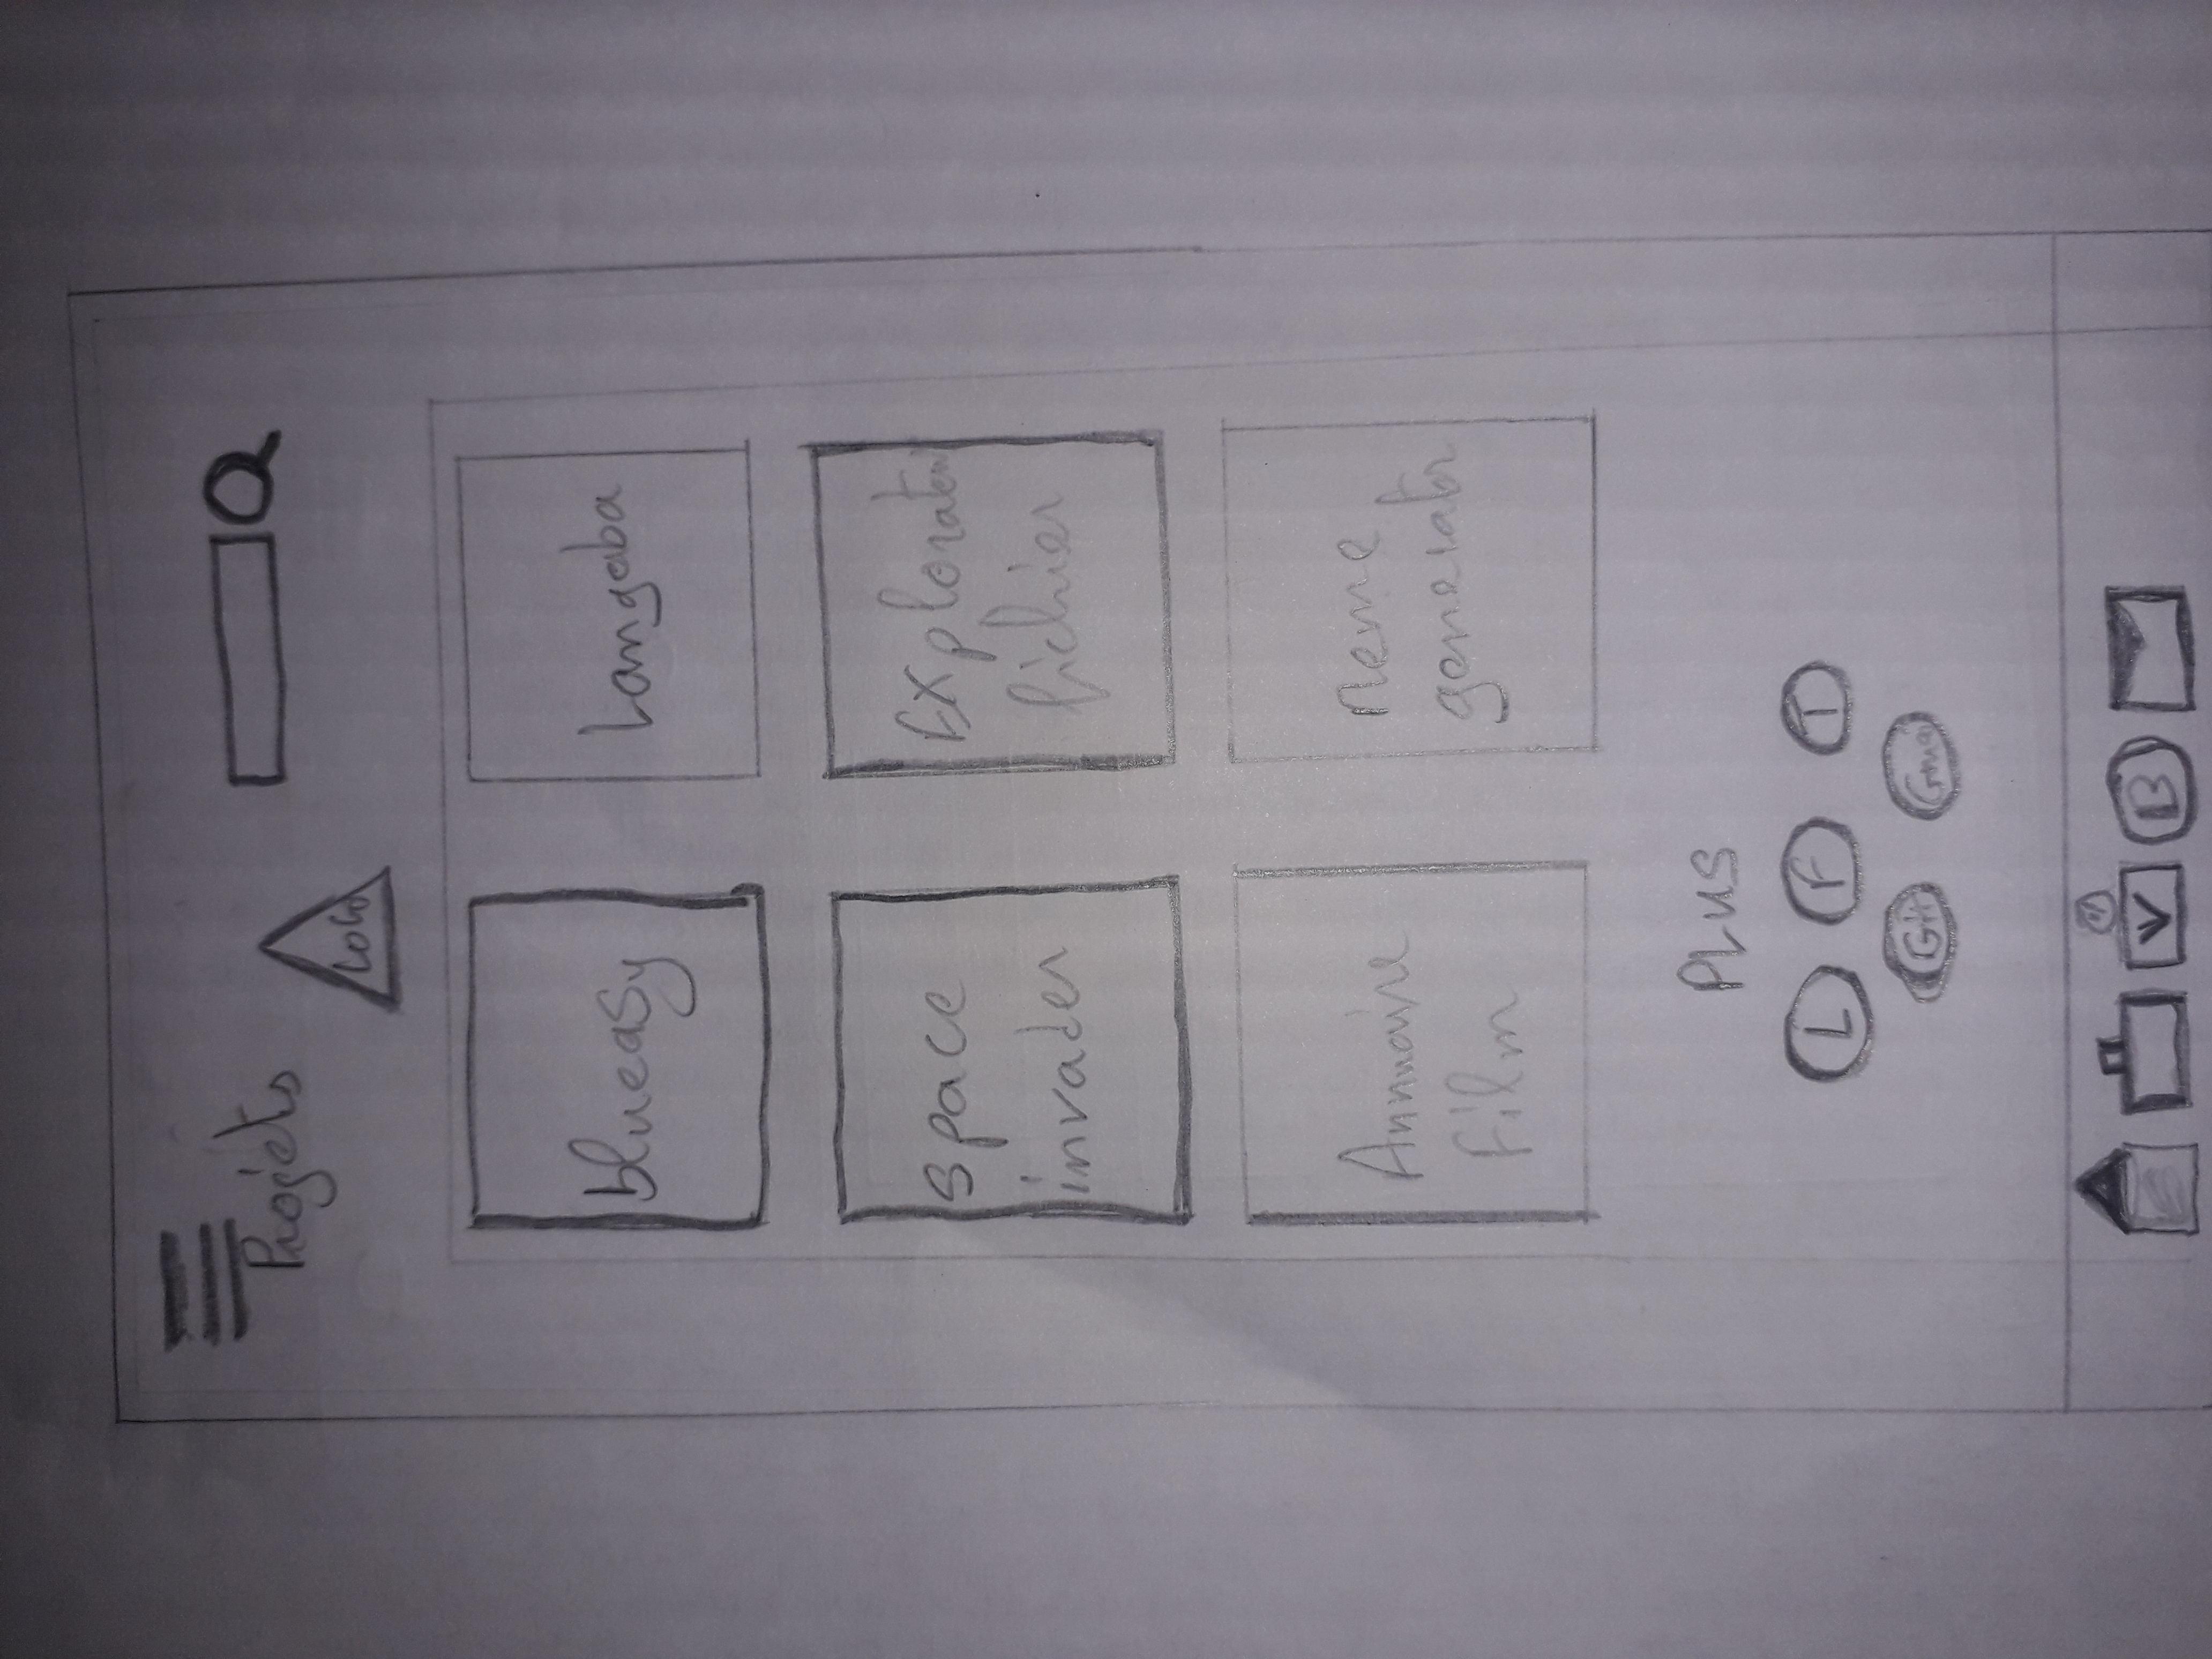 Projets
LOGO
blueasy
Langaba
space
invader
EXplorateur
fichier
Annuaire
Film
Meme
generator
PLUS
L F T
Git
V B